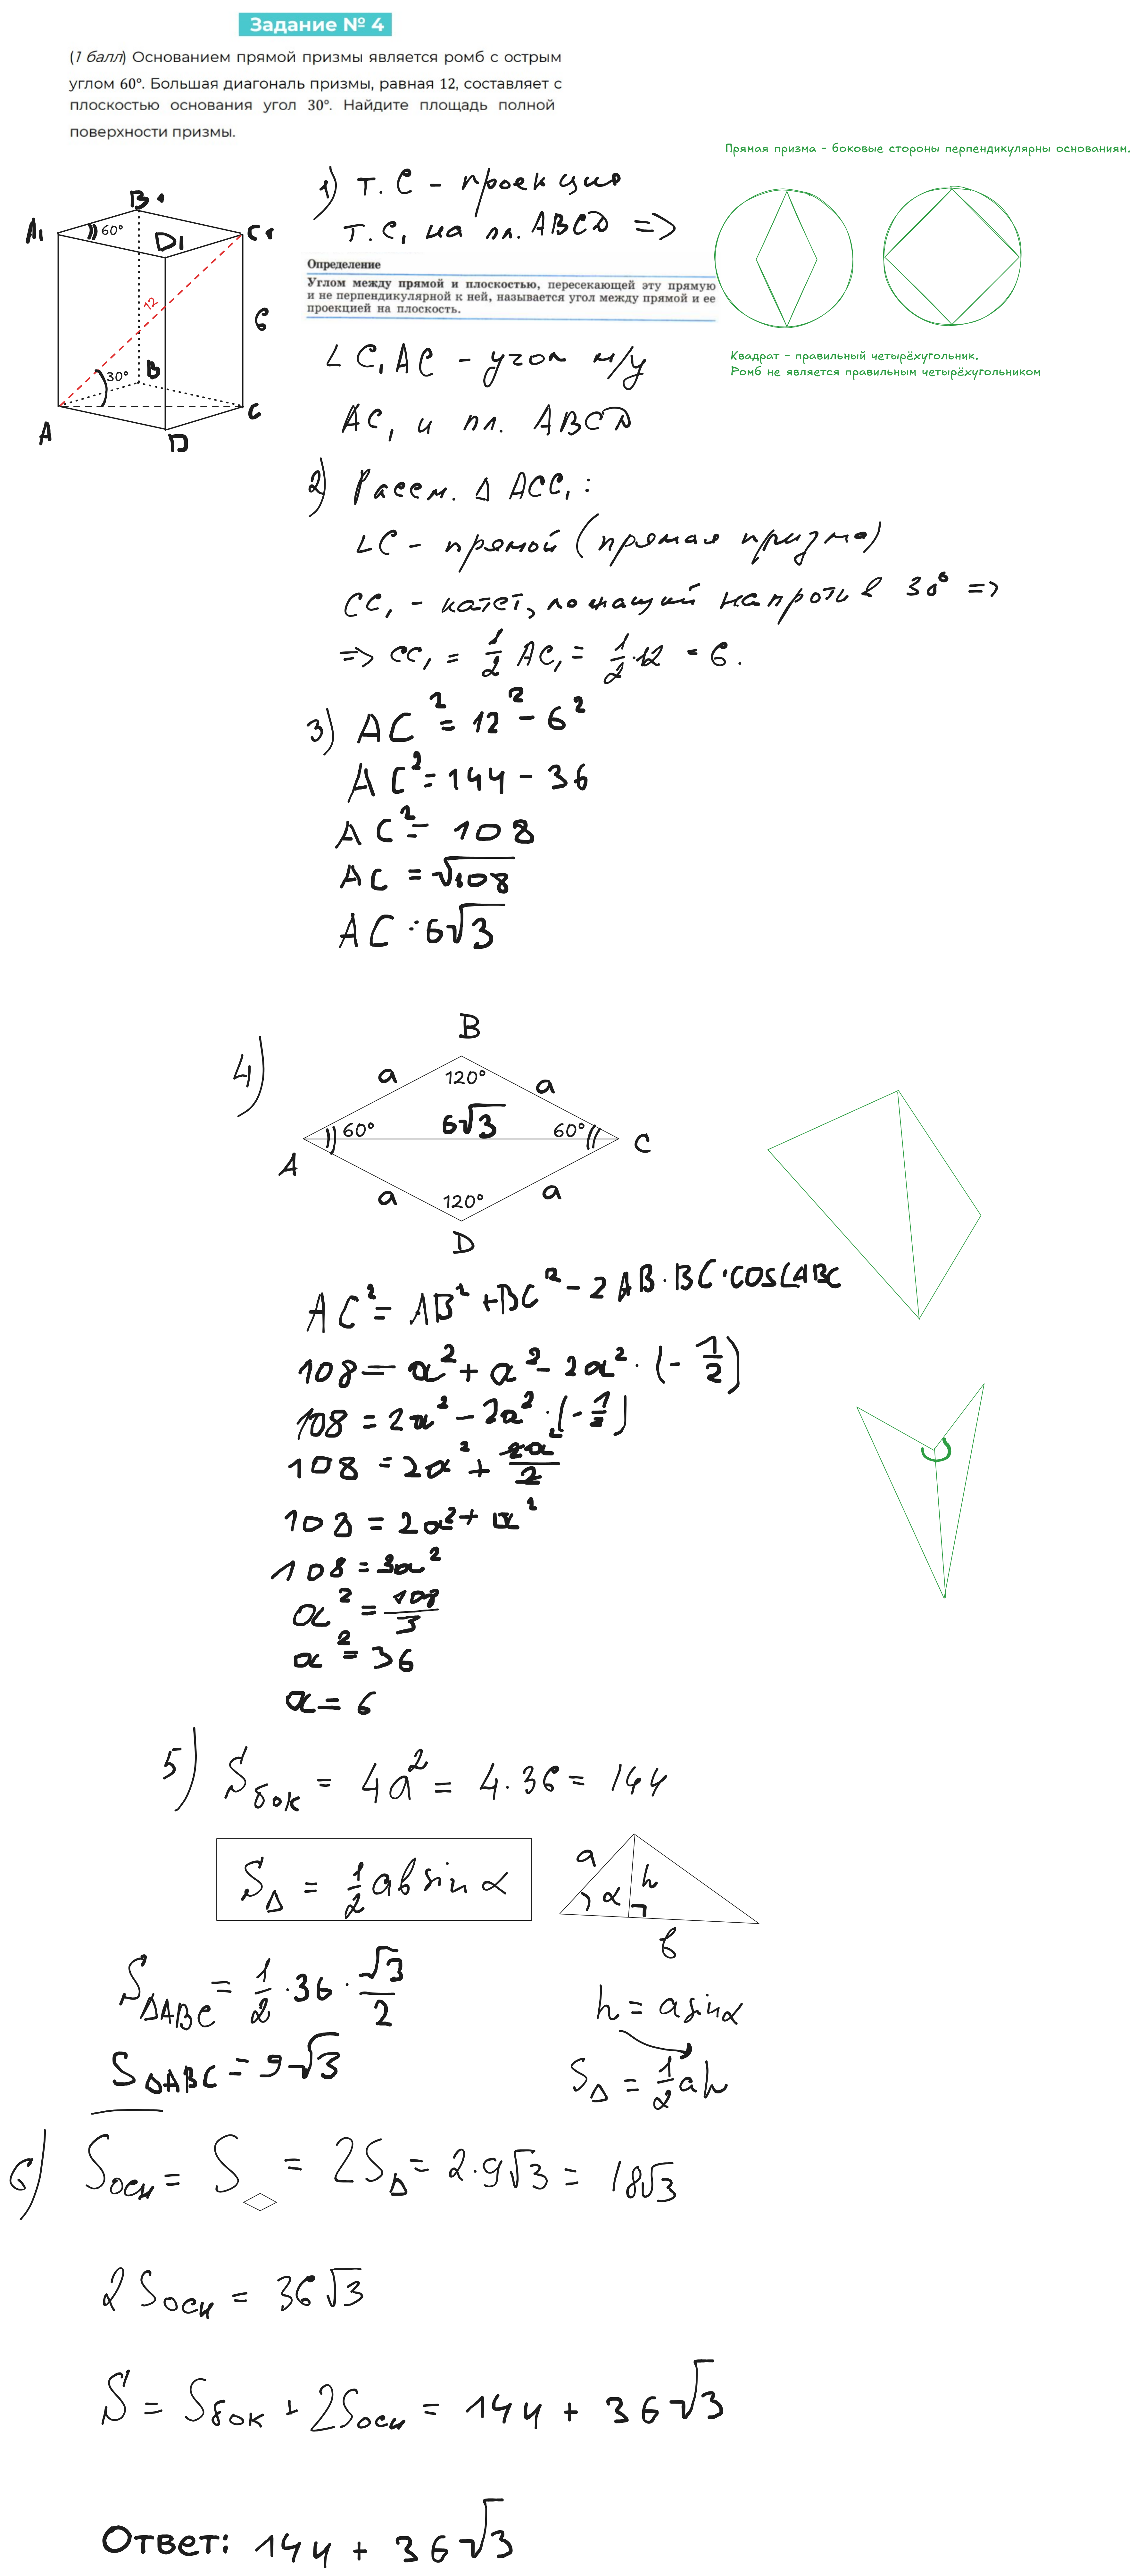 Задание № 4
(1 балл) Основанием прямой призмы является ромб с острым
углом 60°. Большая диагональ призмы, равная 12, составляет с
плоскостью основания угол 30°. Найдите площадь полной
поверхности призмы.
Прямая призма - боковые стороны перпендикулярны основаниям.
A₁ B₁ C₁ D₁ 60°
12
6
30°
A B C D
1) т. C - проекция
т. C₁ на пл. ABCD =>
Определение
Углом между прямой и плоскостью, пересекающей эту прямую
и не перпендикулярной к ней, называется угол между прямой и ее
проекцией на плоскость.
Квадрат - правильный четырёхугольник.
Ромб не является правильным четырёхугольником
∠C₁AC - угол м/у
AC₁ и пл. ABCD
2) Рассм. Δ ACC₁:
∠C - прямой (прямая призма)
CC₁ - катет, лежащий напротив 30° =>
=> CC₁ = 1/2 AC₁ = 1/2·12 = 6.
3) AC² = 12² - 6²
AC² = 144 - 36
AC² = 108
AC = √108
AC = 6√3
4)
B
a 120° a
60° 6√3 60°
A C
a 120° a
D
AC² = AB² + BC² - 2AB·BC·cos∠ABC
108 = a² + a² - 2a²·(-1/2)
108 = 2a² - 2a²·(-1/2)
108 = 2a² + 2a²/2
108 = 2a² + a²
108 = 3a²
a² = 108/3
a² = 36
a = 6
5) Sбок = 4a² = 4·36 = 144
SΔ = 1/2 ab sin α
a α h b
SΔABC = 1/2·36·√3/2
h = a sin α
SΔABC = 9√3
SΔ = 1/2 ah
6) Sосн = S◇ = 2SΔ = 2·9√3 = 18√3
2Sосн = 36√3
S = Sбок + 2Sосн = 144 + 36√3
Ответ: 144 + 36√3